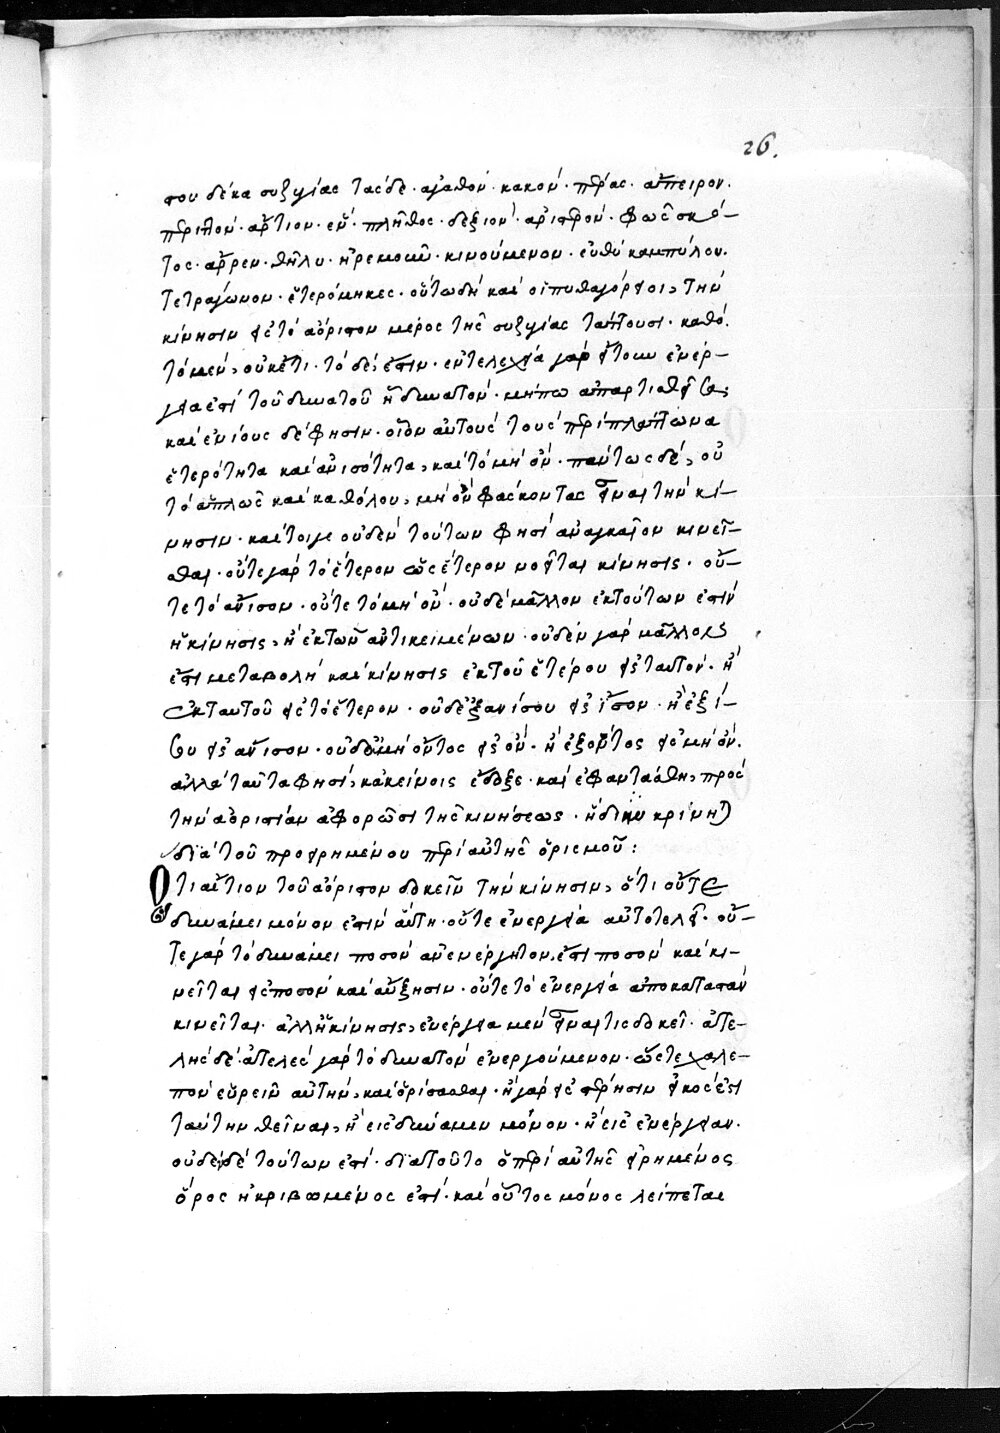 26.
που δέκα συζυγίας τάσδε · ἀγαθόν · κακόν · πέρας · ἄπειρον ·
περιττόν · ἄρτιον · ἕν · πλῆθος · δεξιόν · ἀριστερόν · φῶς σκό-
τος · ἄρρεν · θῆλυ · ἠρεμοῦν · κινούμενον · εὐθύ καμπύλον ·
τετράγωνον · ἑτερόμηκες · οὕτω δή καὶ οἱ πυθαγόρειοι, τὴν
κίνησιν εἰς τὸ ἀόριστον μέρος τῆς συζυγίας τάττουσι · καθό
τὸ μέν, οὐκέτι · τὸ δέ, ἔστιν · ἐντελέχεια γάρ ἤτοι ἐνέρ-
γεια ἐστί τοῦ δυνατοῦ ᾗ δυνατόν · μήπω ἀπαρτισθεῖσα ·
καὶ ἐνίους δέ φησιν · οἷον αὐτούς τούς περὶ πλάτωνα
ἑτερότητα καὶ ἀνισότητα, καὶ τὸ μὴ ὄν · πάντως δέ, οὐ
τὸ ἁπλῶς καὶ καθόλου, μὴ ὄν φάσκοντας εἶναι τὴν κί-
νησιν · καίτοιγε οὐδέν τούτων φησί ἀναγκαῖον κινεῖ-
σθαι · οὔτε γάρ τὸ ἕτερον ὡς ἕτερον νοεῖται κίνησις · οὔ-
τε τὸ ἄνισον · οὔτε τὸ μὴ ὄν · οὐδέ μᾶλλον ἐκ τούτων ἐστίν
ἡ κίνησις, ἢ ἐκ τῶν ἀντικειμένων · οὐδέν γάρ μᾶλλον
ἐστι μεταβολή καὶ κίνησις ἐκ τοῦ ἑτέρου εἰς ταυτόν · ἢ
ἐκ ταυτοῦ εἰς τὸ ἕτερον · οὐδέ ἐξ ἀνίσου εἰς ἴσον · ἢ ἐξ ἴ-
σου εἰς ἄνισον · οὐδέ ἐκ μὴ ὄντος εἰς ὄν · ἢ ἐξ ὄντος εἰς μὴ ὄν ·
ἀλλὰ ταῦτα φησί, κἀκείνοις ἔδοξε · καὶ ἐφαντάσθη, πρός
τὴν ἀοριστίαν ἀφορῶσι τῆς κινήσεως · ἤδη κρίνητ
διὰ τοῦ προειρημένου περὶ αὐτῆς ὁρισμοῦ :
Ὅτι αἴτιον τοῦ ἀόριστον δοκεῖν τὴν κίνησιν, ὅτι οὔτε
δυνάμει μόνον ἐστίν αὕτη · οὔτε ἐνεργείᾳ αὐτοτελεῖ · οὔ-
τε γάρ τὸ δυνάμει ποσόν ἀνενέργητον, ἔστι ποσόν καὶ κι-
νεῖται εἰς ποσόν καὶ αὔξησιν · οὔτε τὸ ἐνεργείᾳ ἀποκαταστάν
κινεῖται · ἀλλ' ἡ κίνησις, ἐνέργεια μέν εἶναί τις δοκεῖ · ἀτε-
λής δέ · ἀτελές γάρ τὸ δυνατόν ἐνεργούμενον · ὥστε χαλε-
πόν εὑρεῖν αὐτήν, καὶ ὁρίσασθαι · ἢ γάρ εἰς στέρησιν εἰκός ἐστι
ταύτην θεῖναι, ἢ εἰς δύναμιν μόνον · ἢ εἰς ἐνέργειαν ·
οὐδέ δέ τούτων ἐστί · διὰ τοῦτο ὁ περὶ αὐτῆς εἰρημένος
ὅρος ἠκριβωμένος ἐστί · καὶ οὗτος μόνος λείπεται